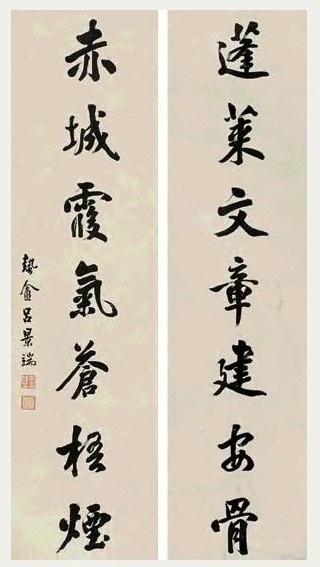 蓬萊文章建安骨
赤城霞氣蒼梧煙
蟄盦呂景端